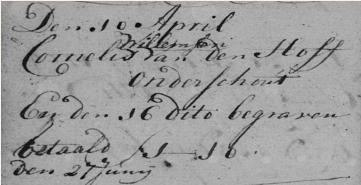 Den 10 April
Willemsen
Cornelis van den Hoff
onderschout
En den 16 dito begraven
betaald f 1-10.
den 27 Junij